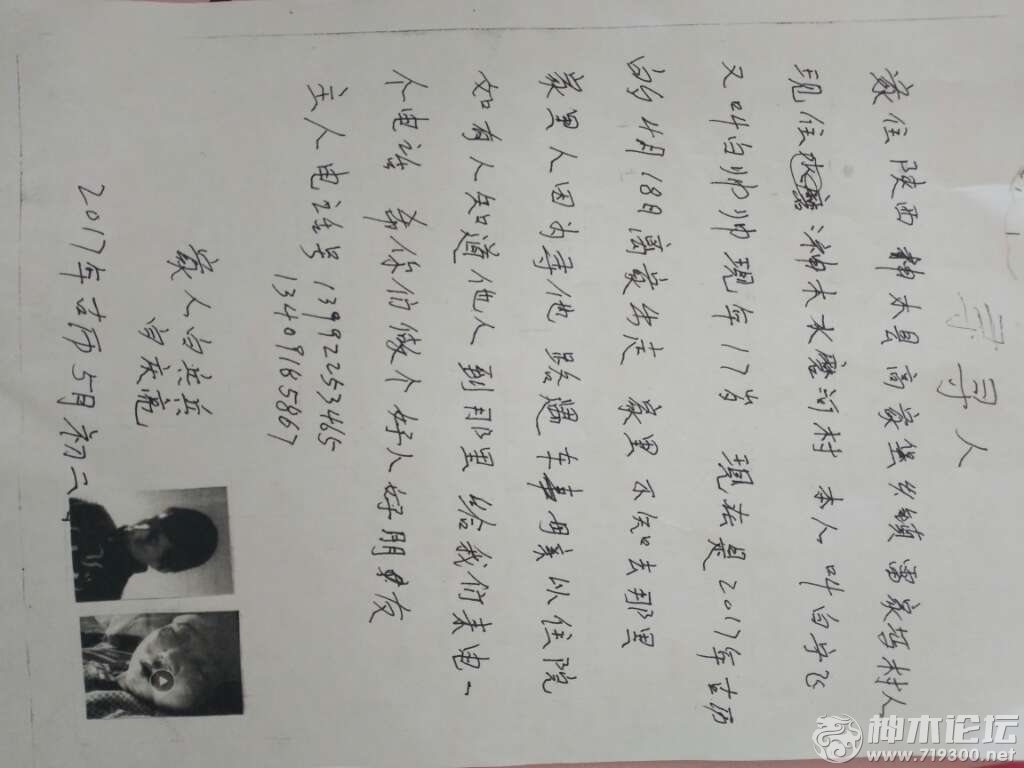 寻人
家住陕西神木县高家堡乡镇雷家 村人
现住 神木水磨河村 本人叫白宇飞
又叫白帅帅 现年17岁 现在是2017年古历
的4月18日离家出走 家里不知去那里
家里人因为寻他 路遇车事 母亲以住院
如有人知道他人到那里 给我们来电一
个电话 希你们做个好人好朋友
主人电话号 13992253465
13409165867
家人 白
白庆亮
2017年古历5月初二
神木论坛
www.719300.net